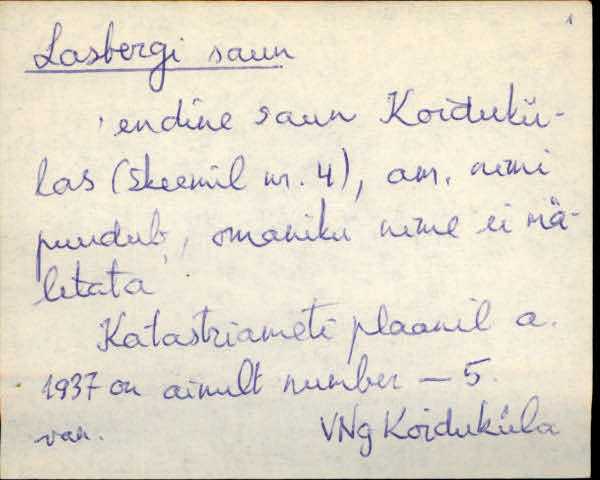 1
Lasbergi saun
endine saun Koidukü-
las (skeemil nr. 4), am. nimi
puudub, omaniku nime ei mä-
letata
Katastriameti plaanil a.
1937 on ainult number – 5.
van. VNg Koiduküla